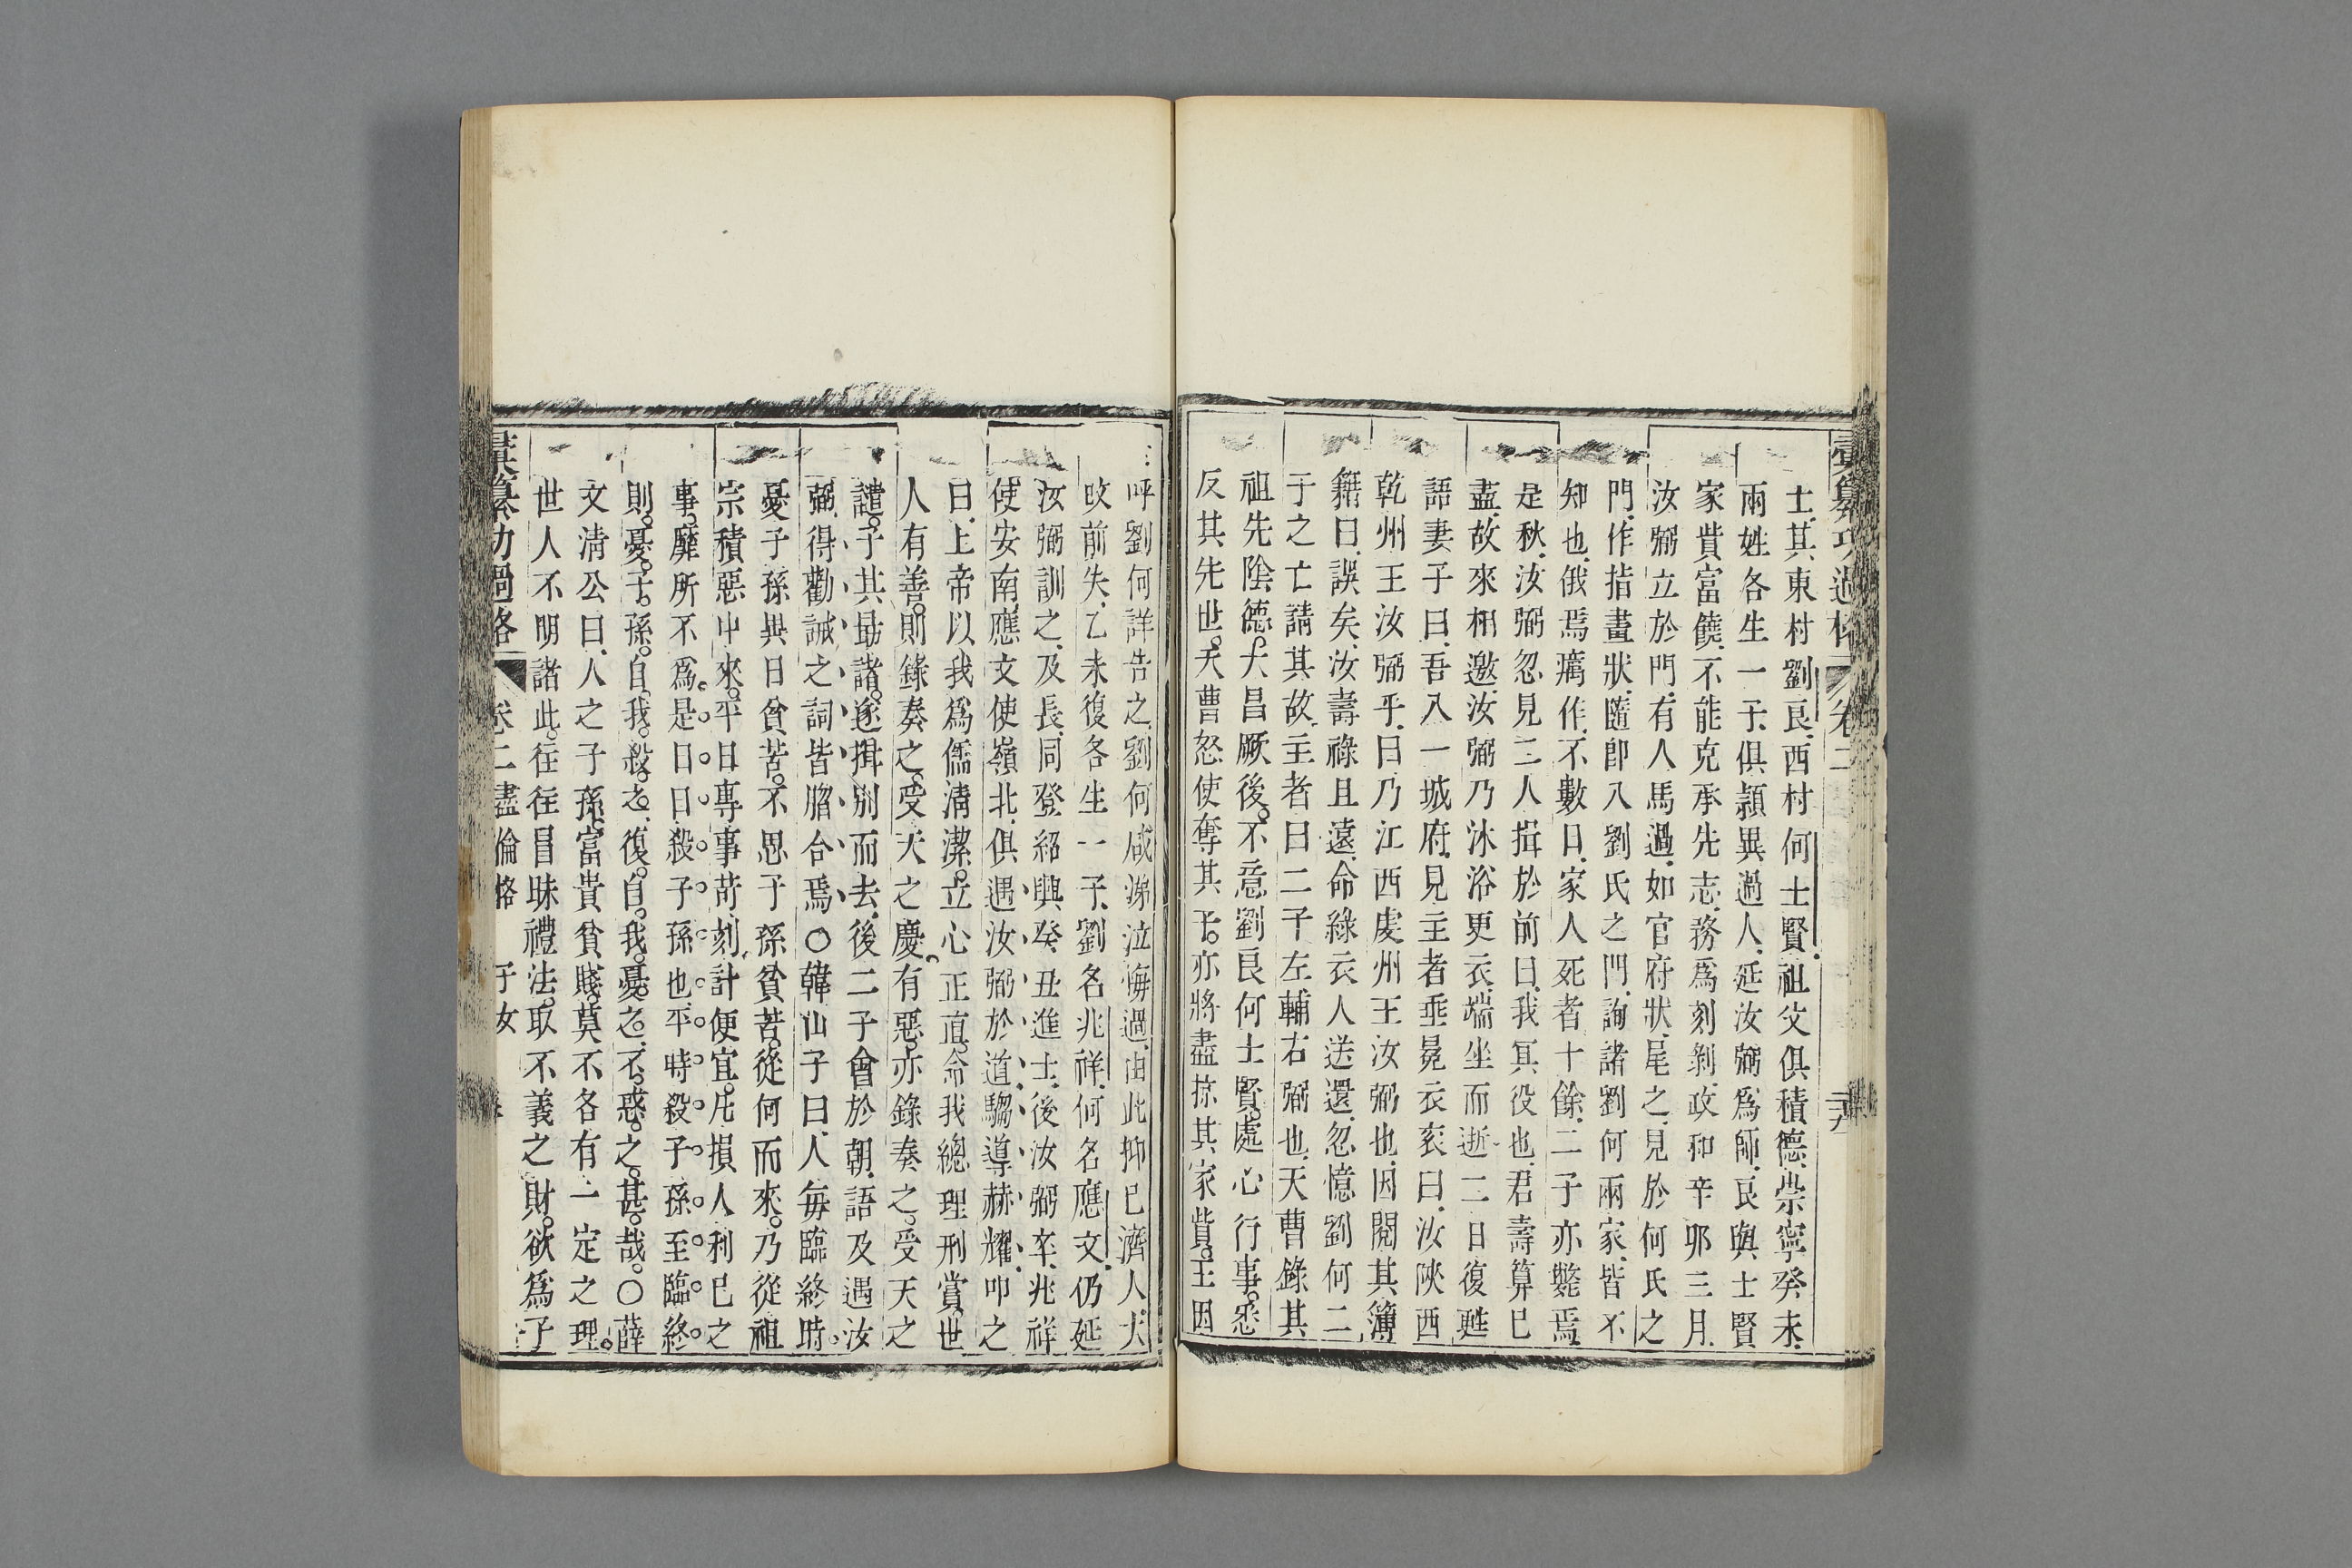 彚纂功過格 卷二 二十九
士其東村劉良西村何士賢祖父俱積德崇寧癸未
兩姓各生一子俱穎異過人延汝弼爲師良與士賢
家貲富饒不能克承先志務爲刻剝政和辛卯三月
汝弼立於門有人馬過如官府狀尾之見於何氏之
門作指畫狀隨卽入劉氏之門詢諸劉何兩家皆不
知也俄焉癘作不數日家人死者十餘二子亦斃焉
是秋汝弼忽見二人揖於前曰我冥役也君壽算已
盡故來相邀汝弼乃沐浴更衣端坐而逝二日復甦
語妻子曰吾入一城府見主者垂冕衣袞曰汝陝西
乾州王汝弼乎曰乃江西虔州王汝弼也因閱其簿
籍曰誤矣汝壽祿且遠命綠衣人送還忽憶劉何二
子之亡請其故主者曰二子左輔右弼也天曹錄其
祖先陰德大昌厥後不意劉良何士賢處心行事悉
反其先世天曹怒使奪其子亦將盡掠其家貲王因
呼劉何詳告之劉何咸涕泣悔過由此抑已濟人大
改前失乙未復各生一子劉名兆祥何名應文仍延
汝弼訓之及長同登紹興癸丑進士後汝弼卒兆祥
使安南應文使嶺北俱遇汝弼於道騶導赫耀叩之
曰上帝以我爲儒清潔立心正直命我總理刑賞世
人有善則錄奏之受天之慶有惡亦錄奏之受天之
譴子其勗諸遂揖別而去後二子會於朝語及遇汝
弼得勸誡之詞皆脗合焉○韓山子曰人每臨終時
憂子孫異日貧苦不思子孫貧苦從何而來乃從祖
宗積惡中來平日專事苛刻計便宜凡損人利已之
事靡所不爲是日日殺子孫也平時殺子孫至臨終
則憂子孫自我殺之復自我憂之不惑之甚哉○薛
文清公曰人之子孫富貴貧賤莫不各有一定之理
世人不明諸此往往冒昧禮法取不義之財欲爲子
彚纂功過格 卷二 盡倫格 子女